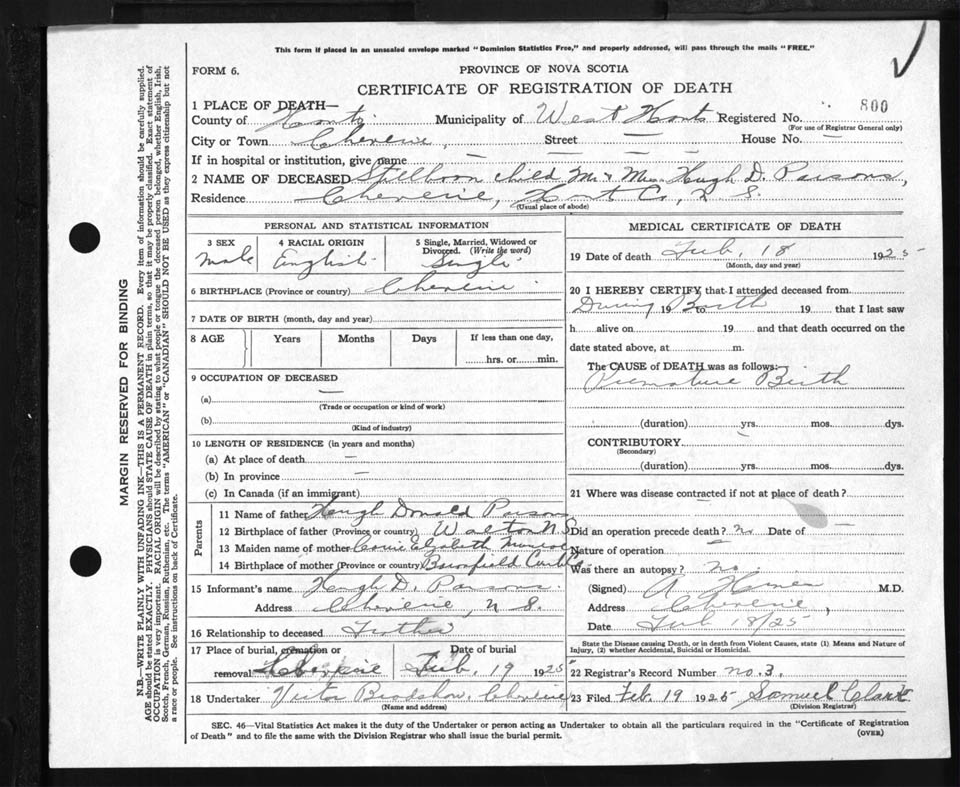 This form if placed in an unsealed envelope marked "Dominion Statistics Free," and properly addressed, will pass through the mails "FREE."
FORM 6.
PROVINCE OF NOVA SCOTIA
CERTIFICATE OF REGISTRATION OF DEATH
800
1 PLACE OF DEATH—
County of Hants Municipality of West Hants Registered No.
(For use of Registrar General only)
City or Town Cheverie, Street — House No. —
If in hospital or institution, give name — — —
2 NAME OF DECEASED Stillborn child Mr & Mrs. Hugh D. Parsons,
Residence Cheverie, Hants Co, N. S.
(Usual place of abode)
PERSONAL AND STATISTICAL INFORMATION
3 SEX 4 RACIAL ORIGIN 5 Single, Married, Widowed or Divorced. (Write the word)
Male English Single
6 BIRTHPLACE (Province or country) Cheverie
7 DATE OF BIRTH (month, day and year)
8 AGE Years Months Days If less than one day,
hrs. or min.
9 OCCUPATION OF DECEASED
(a) —
(Trade or occupation or kind of work)
(b)
(Kind of industry)
10 LENGTH OF RESIDENCE (in years and months)
(a) At place of death —
(b) In province —
(c) In Canada (if an immigrant)
Parents
11 Name of father Hugh Donald Parsons
12 Birthplace of father (Province or country) Walton N.S.
13 Maiden name of mother Elizabeth
14 Birthplace of mother (Province or country)
15 Informant's name Hugh D. Parsons.
Address Cheverie, N. S.
16 Relationship to deceased Father
17 Place of burial, cremation or removal Cheverie Date of burial Feb. 19 1925
18 Undertaker Victor Bradshaw, Cheverie
(Name and address)
MEDICAL CERTIFICATE OF DEATH
19 Date of death Feb. 18 1925
(Month, day and year)
20 I HEREBY CERTIFY that I attended deceased from
During 19 to Birth 19 that I last saw
h alive on 19 and that death occurred on
date stated above, at m.
The CAUSE of DEATH was as follows:
Premature Birth
(duration) yrs. mos. dys.
CONTRIBUTORY —
(Secondary)
(duration) yrs. mos. dys.
21 Where was disease contracted if not at place of death?
—
Did an operation precede death? No Date of —
Nature of operation —
Was there an autopsy? No.
(Signed) A. M.D.
Address Cheverie,
Date Feb 18/25
State the Disease causing Death, or in death from Violent Causes, state (1) Means and Nature of Injury, (2) whether Accidental, Suicidal or Homicidal.
22 Registrar's Record Number No. 3.
23 Filed Feb. 19 1925 Samuel Clark
(Division Registrar)
SEC. 46—Vital Statistics Act makes it the duty of the Undertaker or person acting as Undertaker to obtain all the particulars required in the "Certificate of Registration
of Death" and to file the same with the Division Registrar who shall issue the burial permit.
(OVER)
MARGIN RESERVED FOR BINDING
N.B.—WRITE PLAINLY WITH UNFADING INK—THIS IS A PERMANENT RECORD. Every item of information should be carefully supplied.
AGE should be stated EXACTLY. PHYSICIANS should STATE CAUSE OF DEATH in plain terms, so that it may be properly classified. Exact statement of
OCCUPATION is very important. RACIAL ORIGIN will be described by stating to what people or tongue the deceased person belonged, whether English, Irish,
Scotch, French, German, Russian, Ruthenian, etc. The terms "AMERICAN" or "CANADIAN" SHOULD NOT BE USED as they express citizenship but not
a race or people. See instructions on back of Certificate.